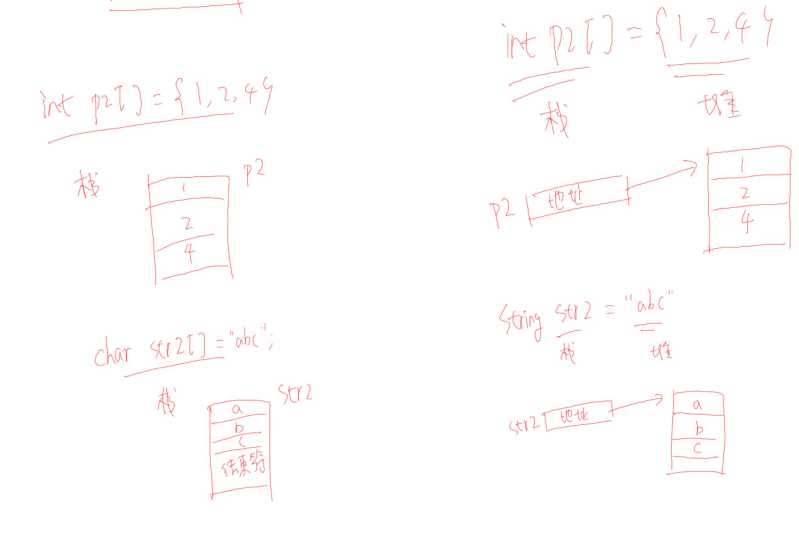 int p2[] = {1, 2, 4}
栈
p2
1
2
4
char str2[] = "abc";
栈
str2
a
b
c
结束符
int p2[] = {1, 2, 4}
栈 堆
p2 地址
1
2
4
String str2 = "abc"
栈 堆
str2 地址
a
b
c